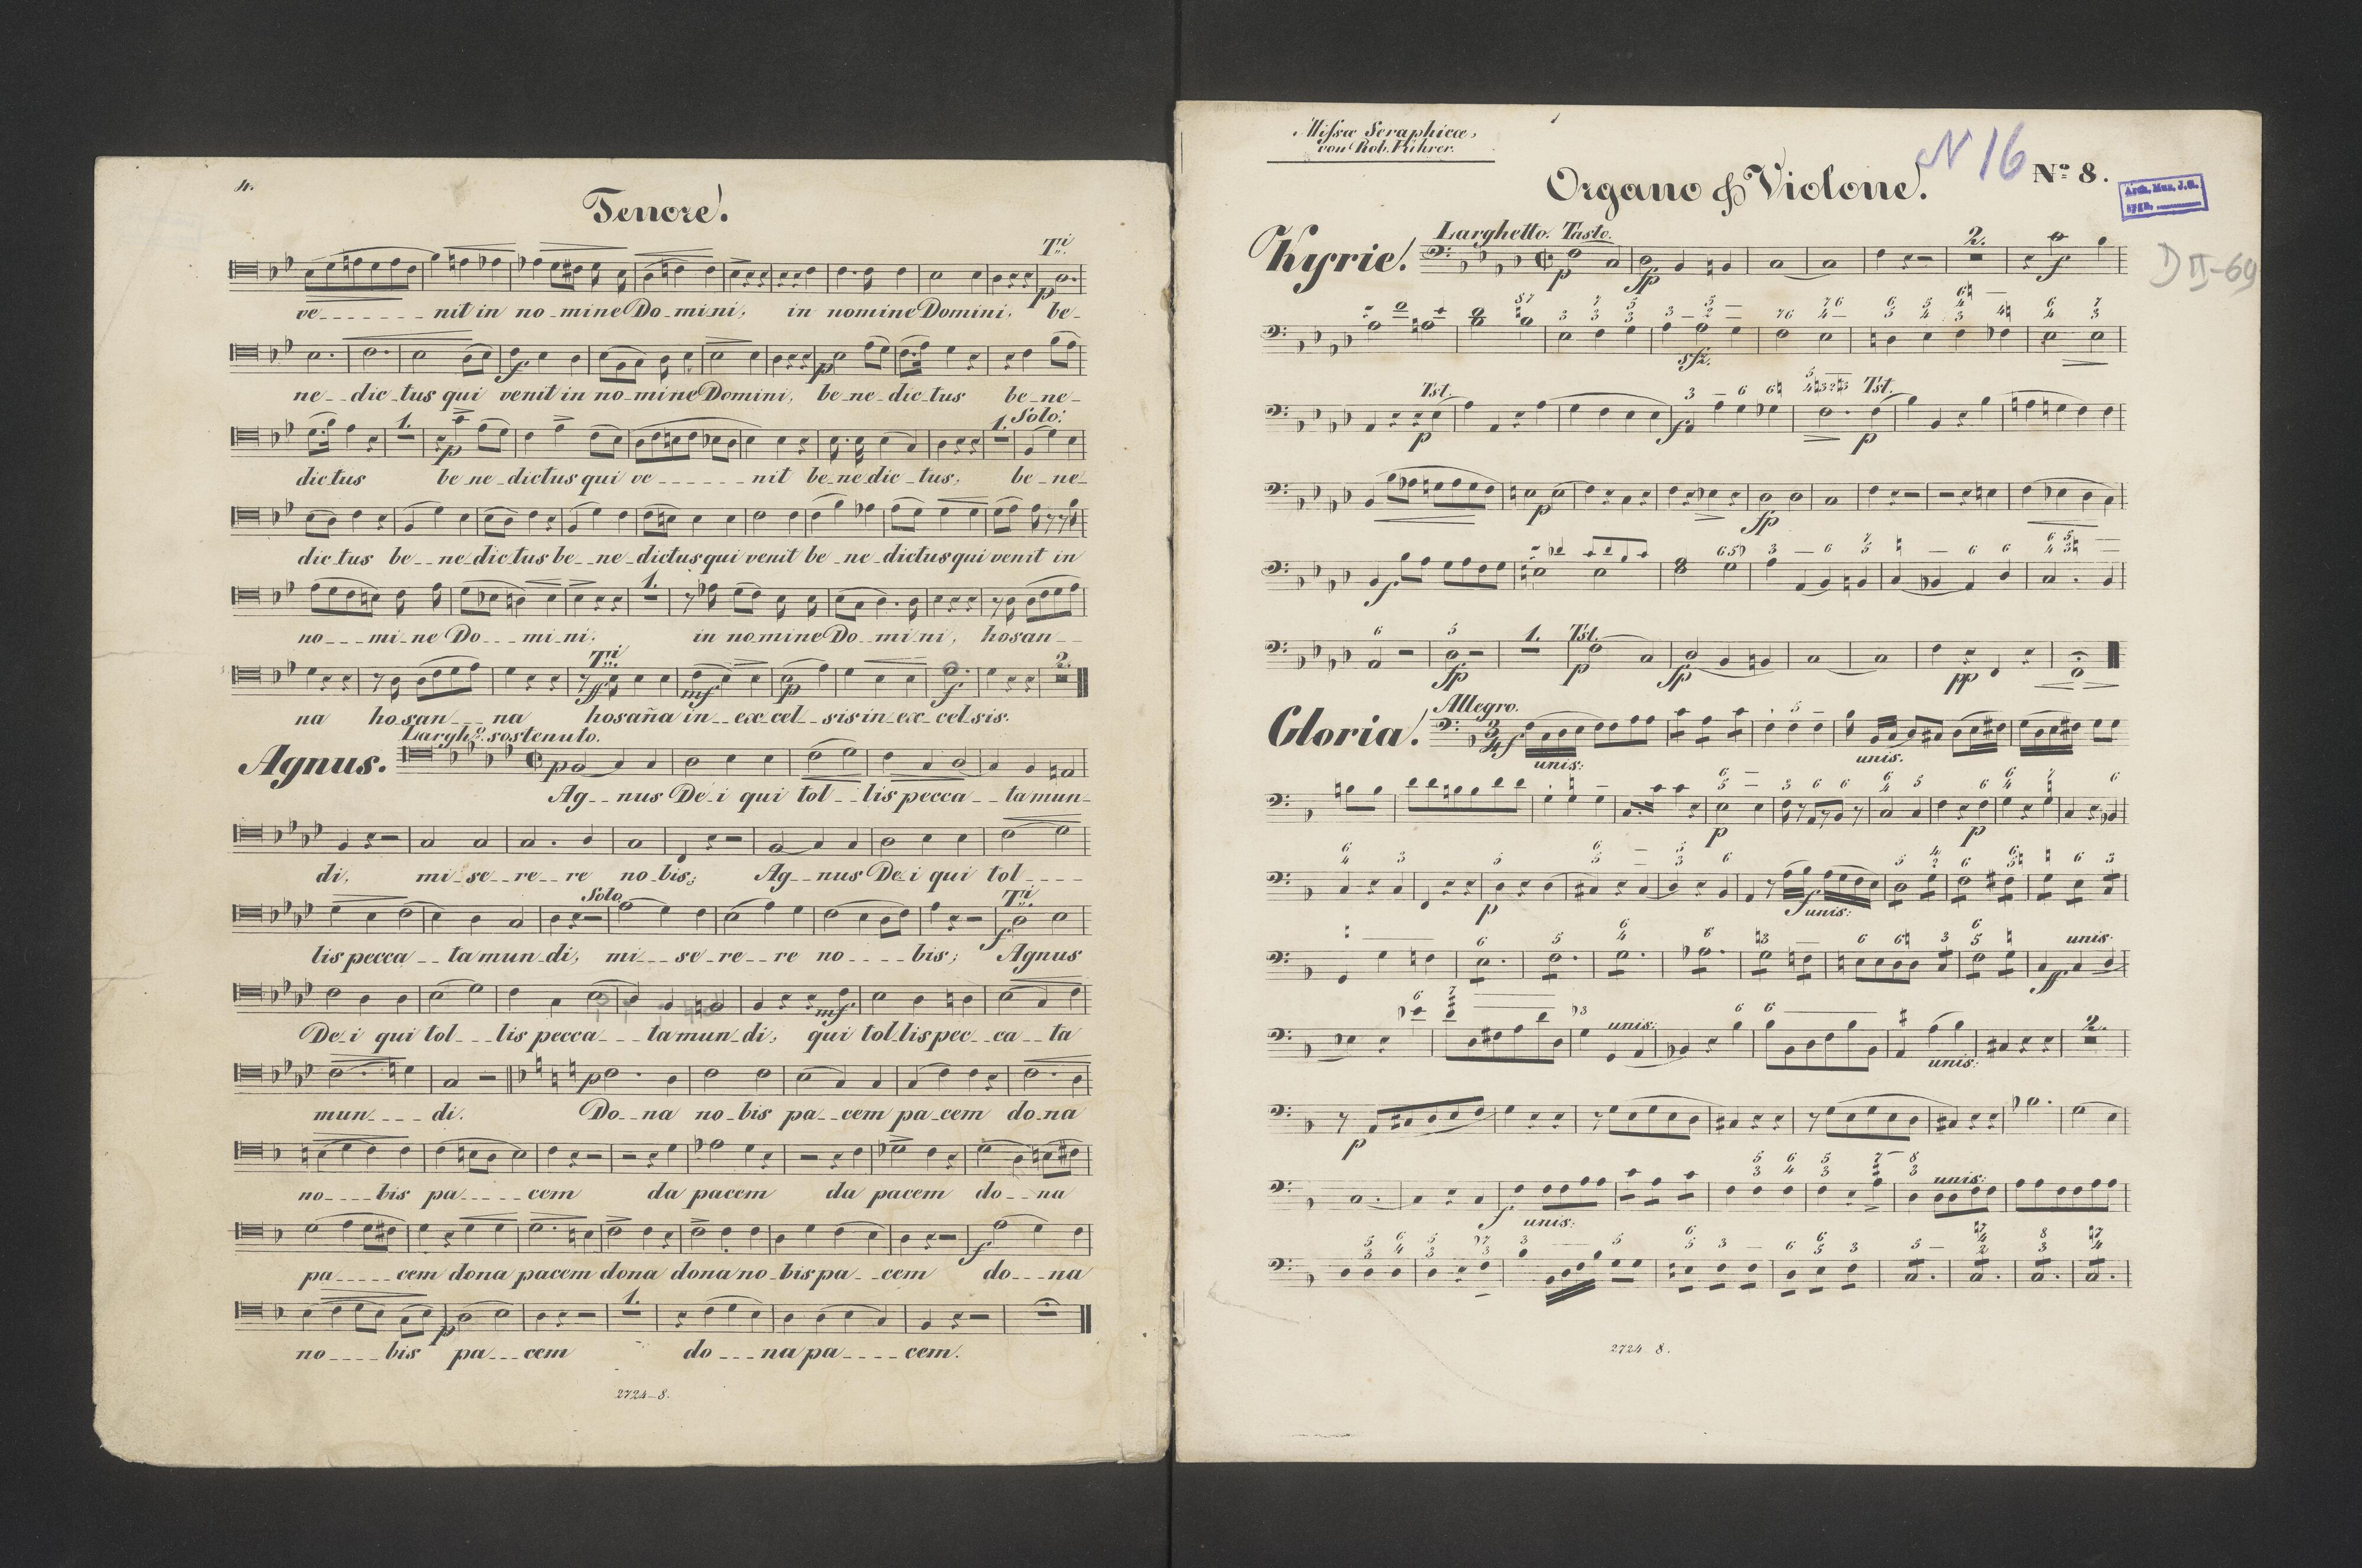 4.
Tenore.
Tti
p
ve_ _ _ _ _ _ _ nit in no_mine Do_mi_ni, in nomine Domini, be_
f p
ne_ _dic_tus qui venit in no_mine Domini, be_ne_dic_tus be_ne_
1. p 1. Solo:
dic_tus be_ne_dictus qui ve_ _ _ _ _ _ nit be_ne_dic_tus, be_ne_
dic_tus be_ _ne_dic_tus be_ _ne_dictus qui venit be_ne_dictus qui venit in
1.
no_ _ _mi_ne Do_ _ _mi_ni. in nomine Do_ _mi_ni, hosan_ _
Tti 2.
ff mf p f
na ho_san_ _ _na hosaña in_ _ex_cel_ _sis in_ex_cel_sis.
Largho. sostenuto.
Agnus. p
Ag_ _nus De_i qui tol_ _lis pecca_ _ta mun_
di, mi_se_re_ _re no_bis; Ag_ _nus De_i qui tol_ _ _ _
Solo. Tti
f
lis pecca_ _ta mun_di, mi_ _ _se_re_ _re no_ _ _ _bis; Agnus
mf
De_i qui tol_ _ _lis pecca_ _ _ta mun_di, qui tol_lis pec_ _ca_ _ta
p
mun_ _ _ _di. Do_ _na no_bis pa_ _cem pa_cem do_na
no_ _ _ _bis pa_ _ _ _ _cem da pacem da pacem do_ _na
f
pa_ _ _ _ _cem dona pacem dona dona no_bis pa_ _cem do_ _ _na
1.
p
no_ _ _ _bis pa_ _ _cem do_ _ _na pa_ _ _ _cem.
2724_8.
Missæ Seraphicæ,
von Rob. Führer.
N 16
No. 8.
Organo & Violone.
Arch. Mus. J.G.
D II-69
Larghetto. Tasto.
Kyrie. p fp 2. f
sfz.
Tst. Tst.
p f p
p fp
f
1. Tst.
fp p fp pp
Allegro.
Gloria. 3/4 f unis: unis.
p p
p f unis:
unis.
ff
unis: unis: 2.
p
unis:
f unis:
2724 8.